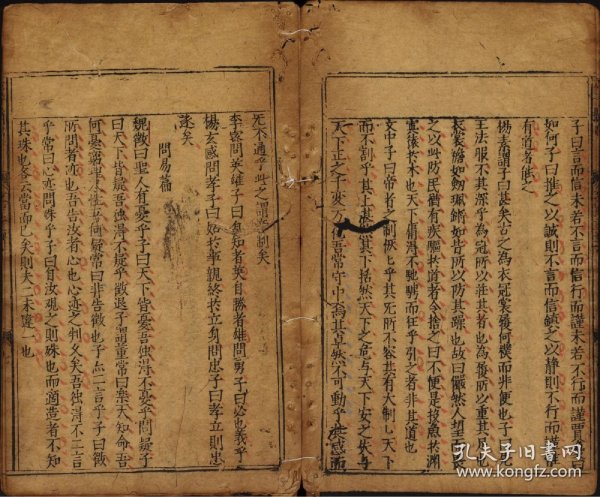 子曰言而信未若不言而信行而謹未若不行而謹賈瓊曰
如何子曰推之以誠則不言而信鎮之以靜則不行而謹惟
有道者能之
楊素謂子曰甚矣古之為衣冠裳履何樸而非便也子曰先
王法服不其深乎為冠所以莊其首也為履所以重其足也
衣裳襜如劒珮鏘如皆所以防其躁也故曰儼然人望而畏
之以此防民猶有疾驅於道者今捨之曰不便是投魚於淵
寘猿於木也天下庸得不馳騁而狂乎引之者非其道也
文中子曰帝者之制恢恢乎其无所不容其有大制制天下
而不割乎其上湛然其下恬然天下之危與天下安之天下失與
天下正之千變萬化吾常守中焉其卓然不可動乎其感而
无不通乎此之謂帝制矣
李密問英雄子曰自知者英自勝者雄問勇子曰必也義乎
楊玄感問孝子曰始於事親終於立身問忠子曰孝立則忠
遂矣
問易篇
魏徵曰聖人有憂乎子曰天下皆憂吾獨得不憂乎問疑子
曰天下皆疑吾獨得不疑乎徵退子謂董常曰樂天知命吾
何憂窮理盡性吾何疑常曰非告徵也子亦二言乎子曰徵
所問者迹也吾告汝者心也心迹之判久矣吾獨得不二言
乎常曰心迹固殊乎子曰自汝觀之則殊也而適造者不知
其殊也各云當而已矣則夫二未違一也
孔夫子旧书网
www.kongfz.com